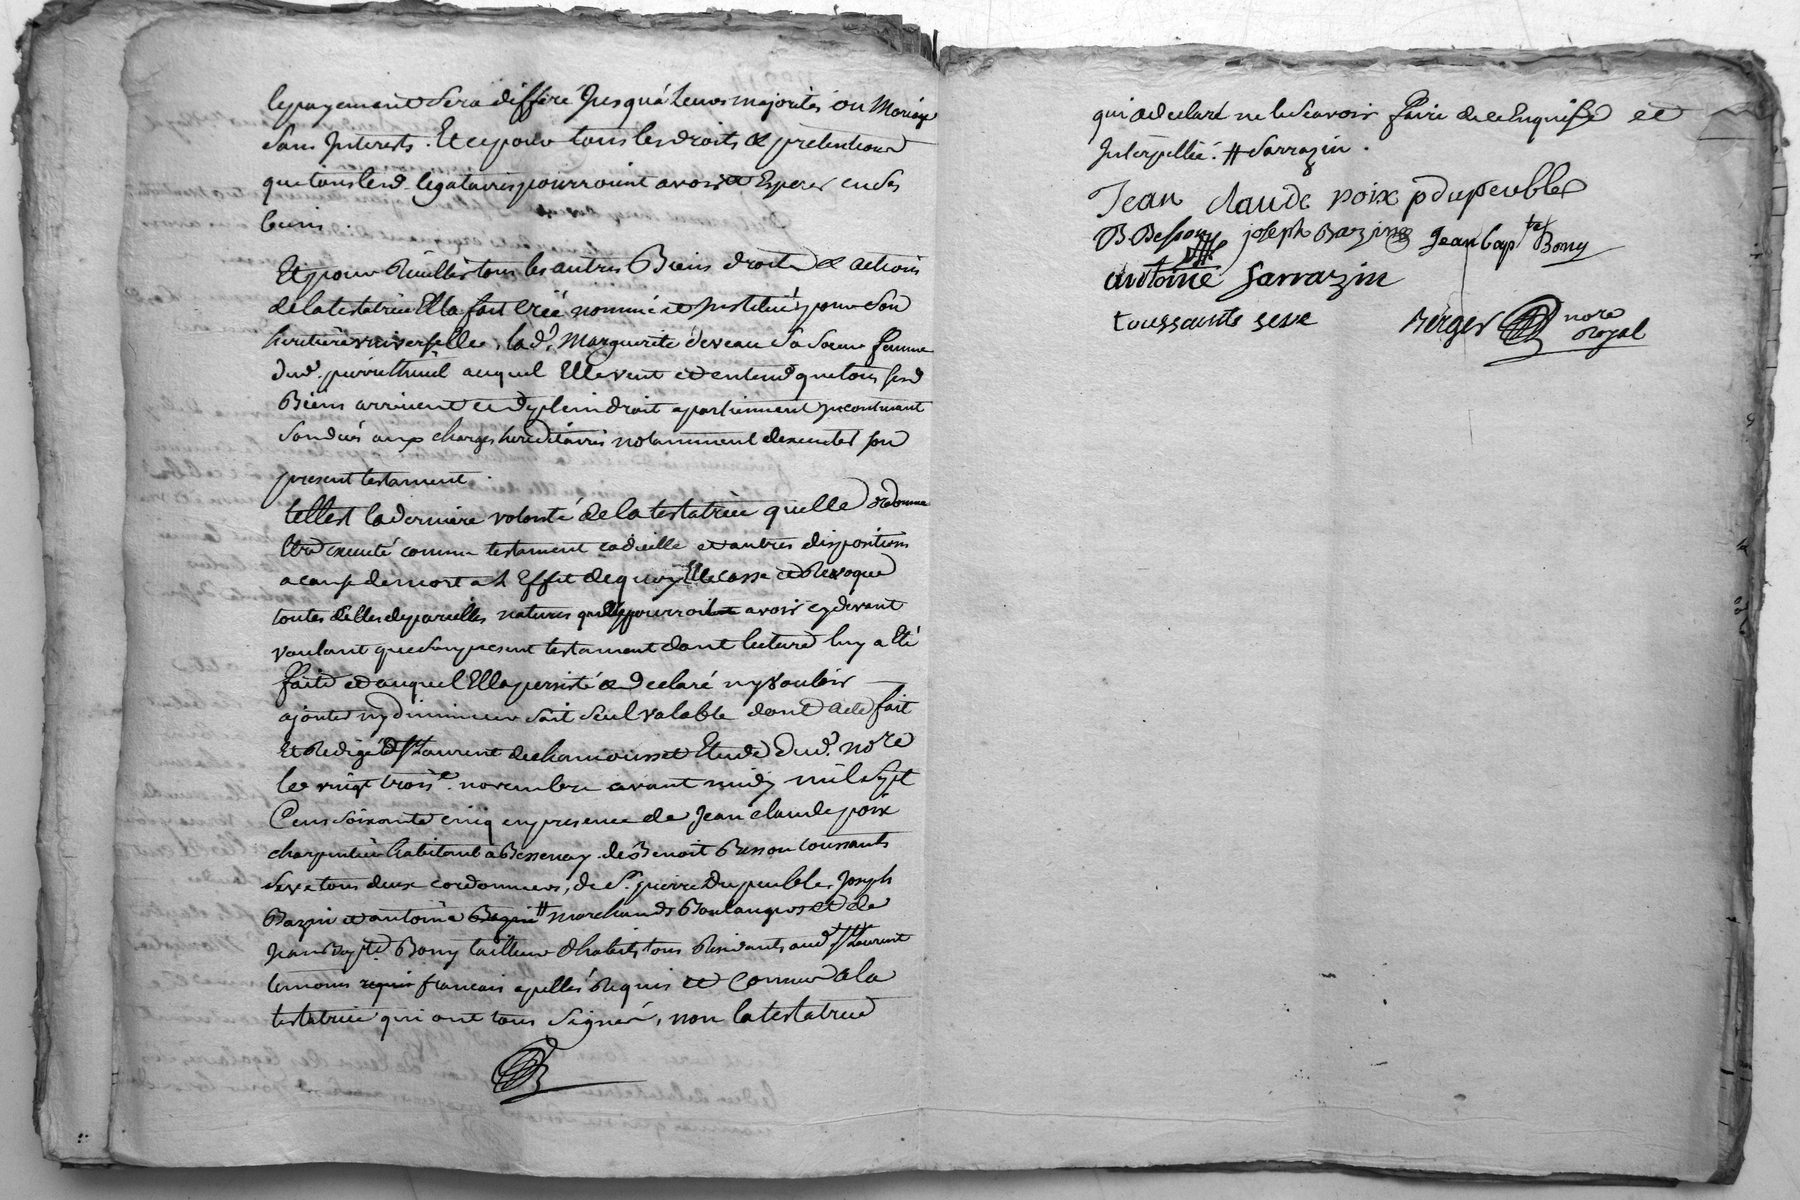 le payement sera differé jusqu'a leurs majorités ou mariage
sans Interests. Et ce pour tous les droits & pretentions
que tous lesd. legataires pourroient avoir et Esperer en ses
biens.
Et pour Recuillir tous les autres Biens droits & actions
de la testatrice Ella fait créé nommé et Institué pour son
heritiere universselle, lad. Marguerite deveau sa soeur femme
dud. pierre thimel auquel Elle veut et entend que tous sesd
Biens arrivent et dyplein droit apartiennent jncontinant
son deces aux charges hereditaires notamment dexecuter son
present testament.
telle est la derniere volonté de la testatrice quelle ordonne
Etre executé comme testament codicille et autres dispositions
a cause de mort a l Effet de quoy Elle casse et Revoque
toutes celles de pareilles natures quelle pourroit avoir cy devant
voulant que son present testament dont lecture luy a Eté
faite et auquel Ella persisté & declaré ny vouloir
ajouter ny diminuer soit seul valable dont acte fait
Et Redigé a St Laurent de chamousset Etude dud. nore
le vingt trois.e novembre avant midy mil sept
Cens soixante cinq en presence de Jean claude poix
charpentier habitant a Bessenay de Benoit Besson toussants
seve tous deux cordonniers, de Sr. pierre Dupeuble, Joseph
Bazin et antoine Bazin # marchands Boulangers et de
Jean Bapte. Bony tailleur d'habits tous Residants aud St Laurent
temoins requis francais apellés Requis et Connus de la
testatrice qui ont tous signés, non la testatrice
qui a declaré ne le scavoir faire de ce Enquise et
Interpellée. # Sarrazin.
Jean claude poix p dupeuble
B Besson joseph Bazin Jean bap te Bony
antoine sarrazin
toussants seve Berger nore
royal